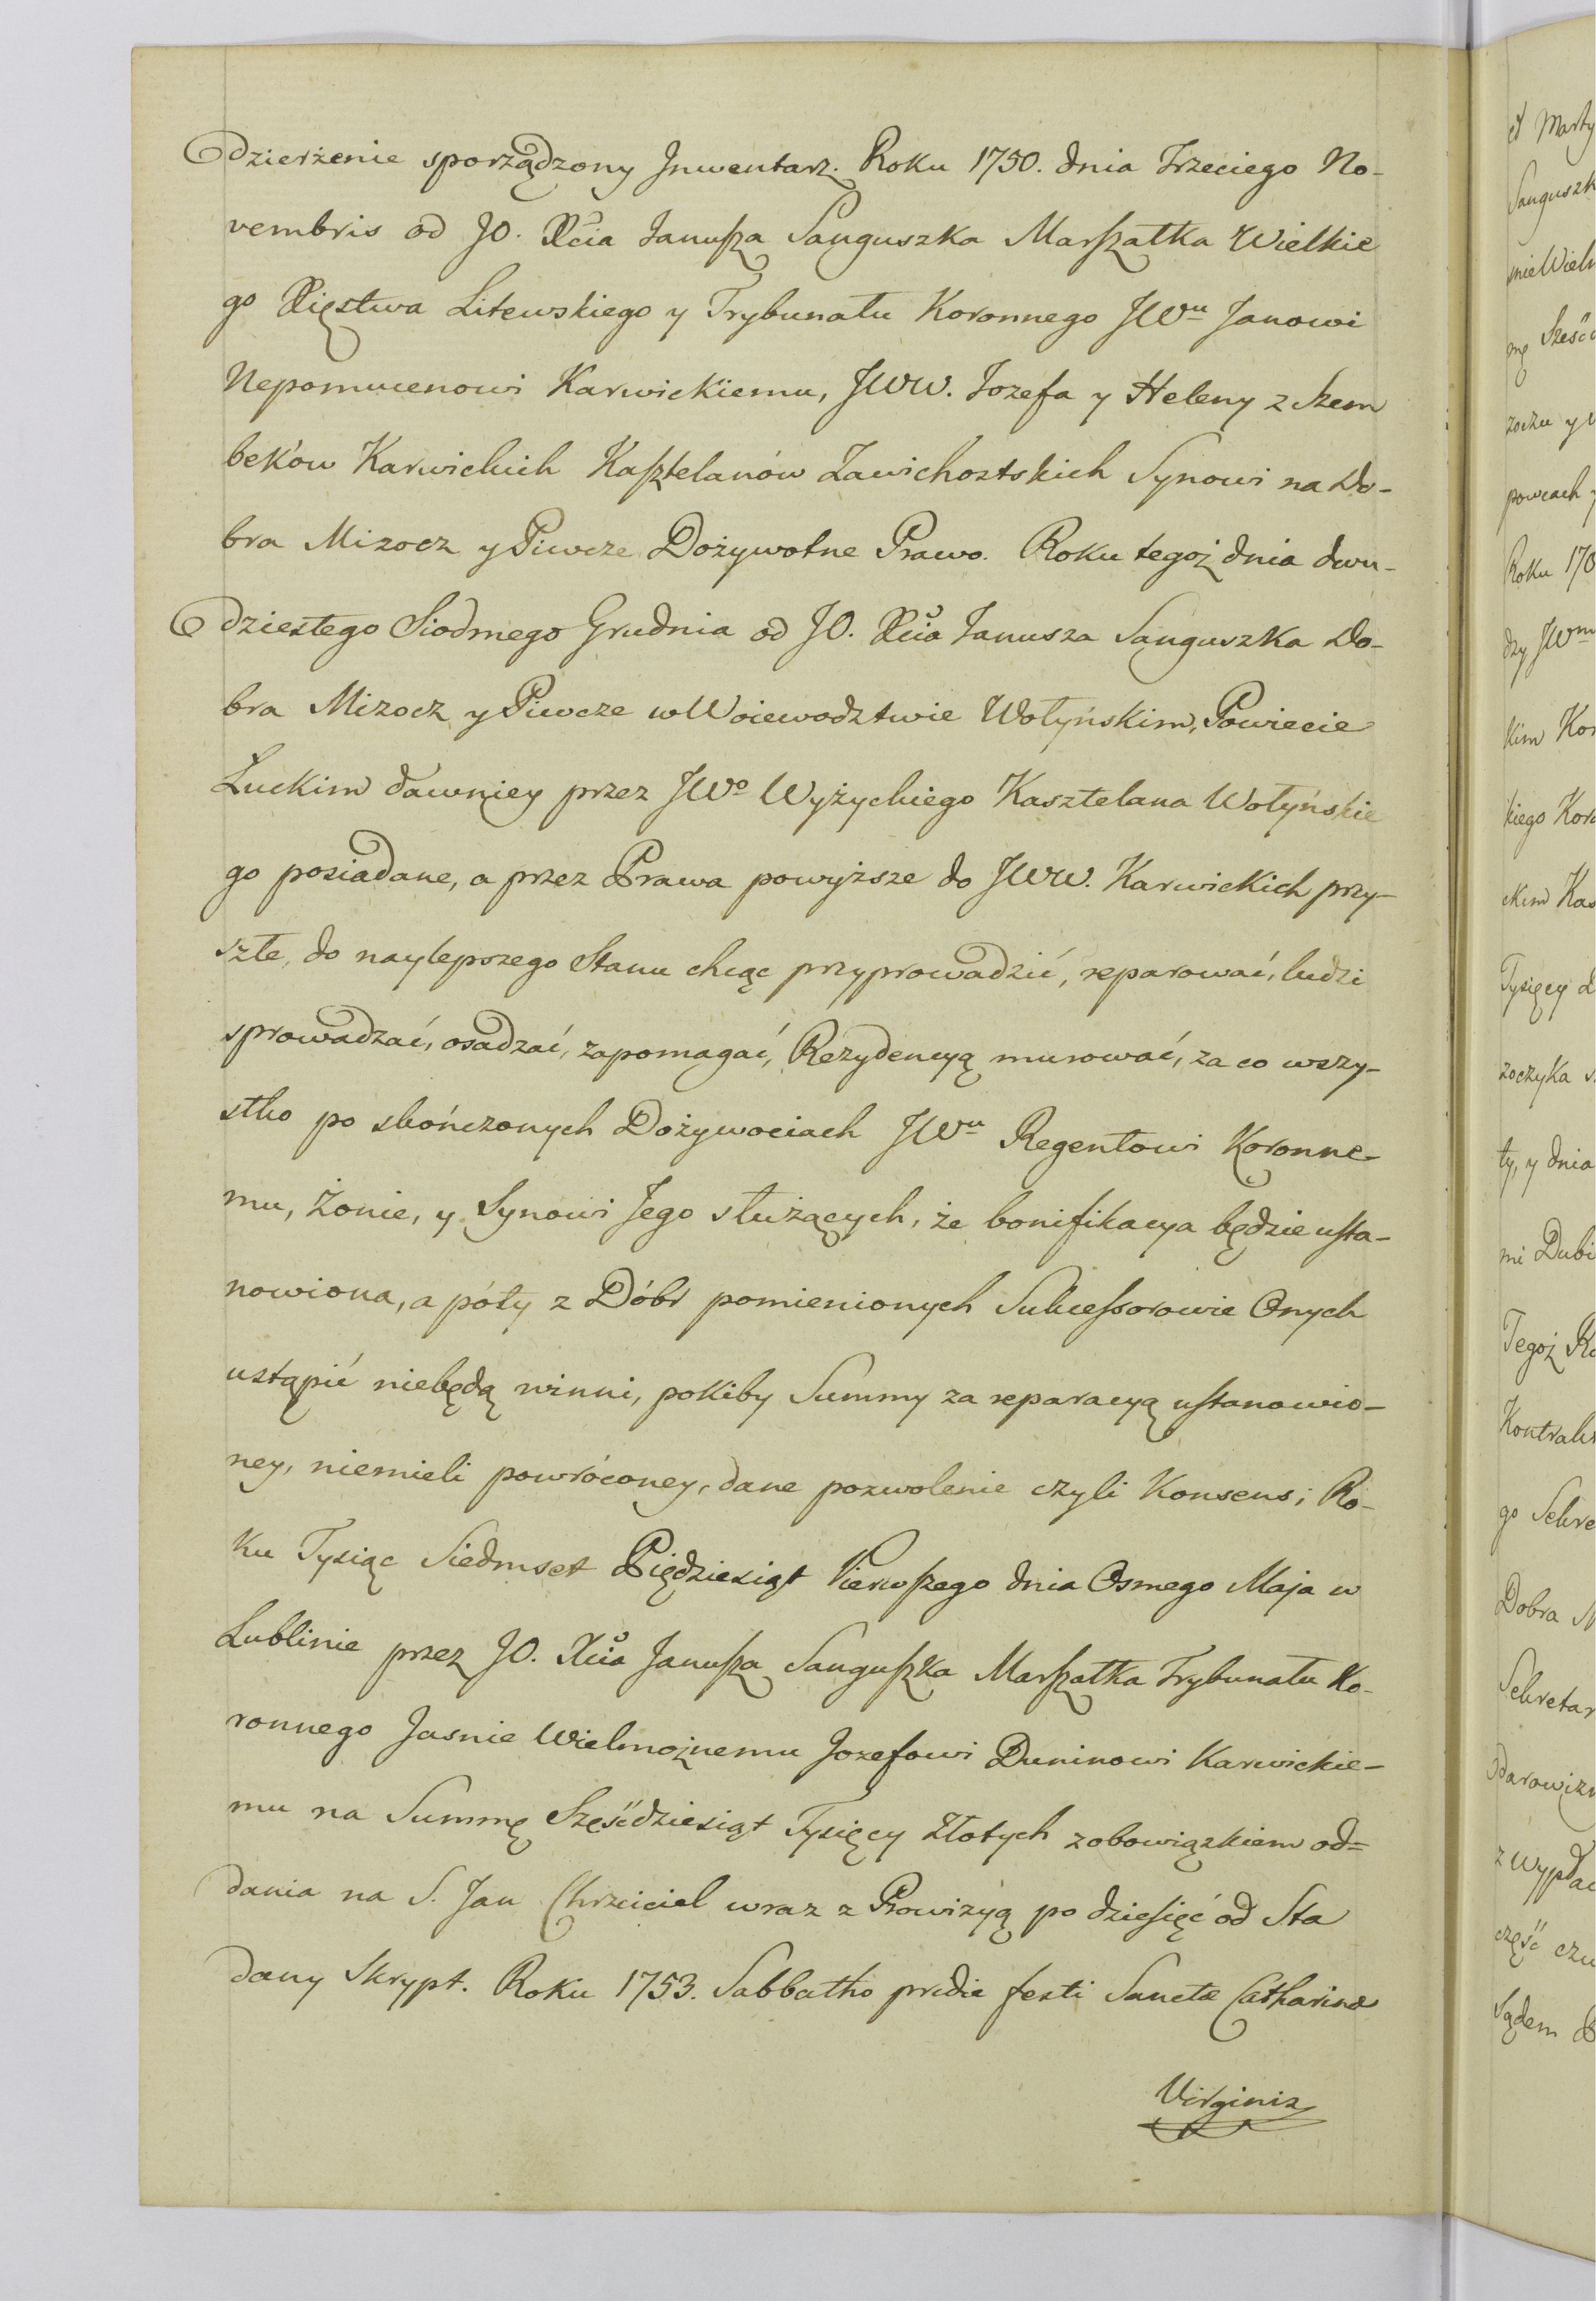 dzierżenie sporządzony Jnwentarz. Roku 1750. dnia Trzeciego No-
vembris od JO. Xcia Janusza Sanguszka Marszałka Wielkie
go Xięstwa Litewskiego y Trybunału Koronnego JWu Janowi
Nepomucenowi Karwickiemu, JWW. Jozefa y Heleny z Szem
beków Karwickich Kasztelanów Zawichostskich Synowi na Do-
bra Mizocz y Piwcze Dożywotne Prawo. Roku tegoż dnia dwu-
dziestego Siodmego Grudnia od JO. Xcia Janusza Sanguszka Do-
bra Mizocz y Piwcze w Woiewodztwie Wołyńskim, Powiecie
Łuckim dawniey przez JWo Wyżyckiego Kasztelana Wołyńskie
go posiadane, a przez Prawa powyższe do JWW. Karwickich przy-
szłe, do naylepszego Stanu chcąc przyprowadzić, reparować, ludzi
sprowadzać, osadzać, zapomagać, Rezydencyą murować, za co wszy-
stko po skończonych Dożywociach JWu Regentowi Koronne-
mu, Żonie, y Synowi Jego służących, że bonifikacya będzie usta-
nowiona, a póty z Dóbr pomienionych Sukcessorowie Onych
ustąpić niebędą winni, pokiby Summy za reparacyą ustanowio-
ney, niemieli powróconey, dane pozwolenie czyli Konsens; Ro-
ku Tysiąc Siedmset Piędziesiąt Pierwszego dnia Osmego Maja w
Lublinie przez JO. Xcia Janusza Sanguszka Marszałka Trybunału Ko-
ronnego Jasnie Wielmożnemu Jozefowi Duninowi Karwickie-
mu na Summę Sześćdziesiąt Tysięcy Złotych z obowiązkiem od=
dania na S. Jan Chrzciciel wraz z Prowizyą po dziesięć od Sta
dany Skrypt. Roku 1753. Sabbatho pridie festi Sanctæ Catharinæ
Virginis
et Marty
Sanguszk
powcach
Roku 17
kim Kor
kiego Koro
ckim Kas
Tysięcy
zoczyka
ty, y dnia
mi Dubi
Tegoż Ro
Kontrak
go Sekre
Dobra
Sekretar
darowizn
część
Sądem